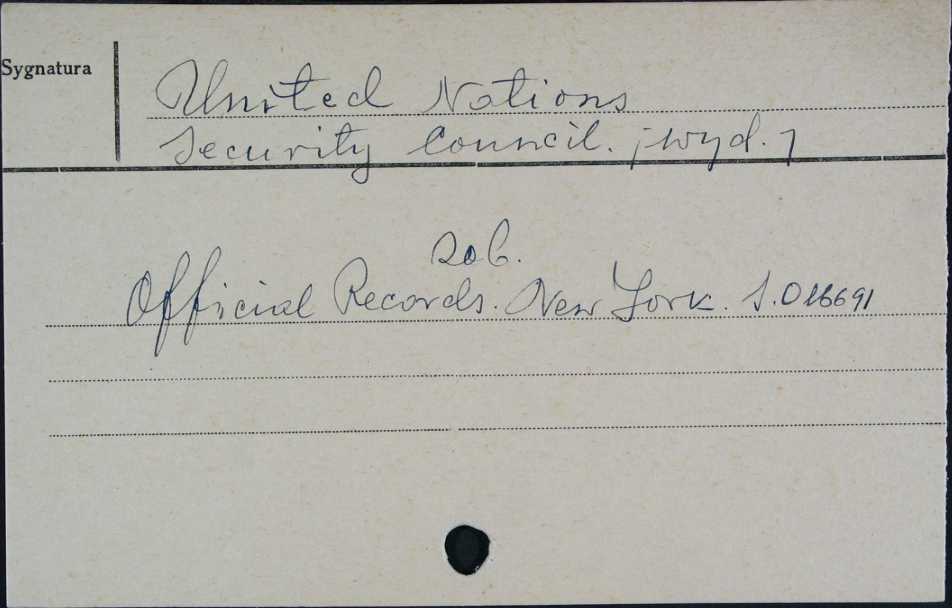 Sygnatura
United Nations
Security Council. [wyd.]
zob.
Official Records. New York. S.016691